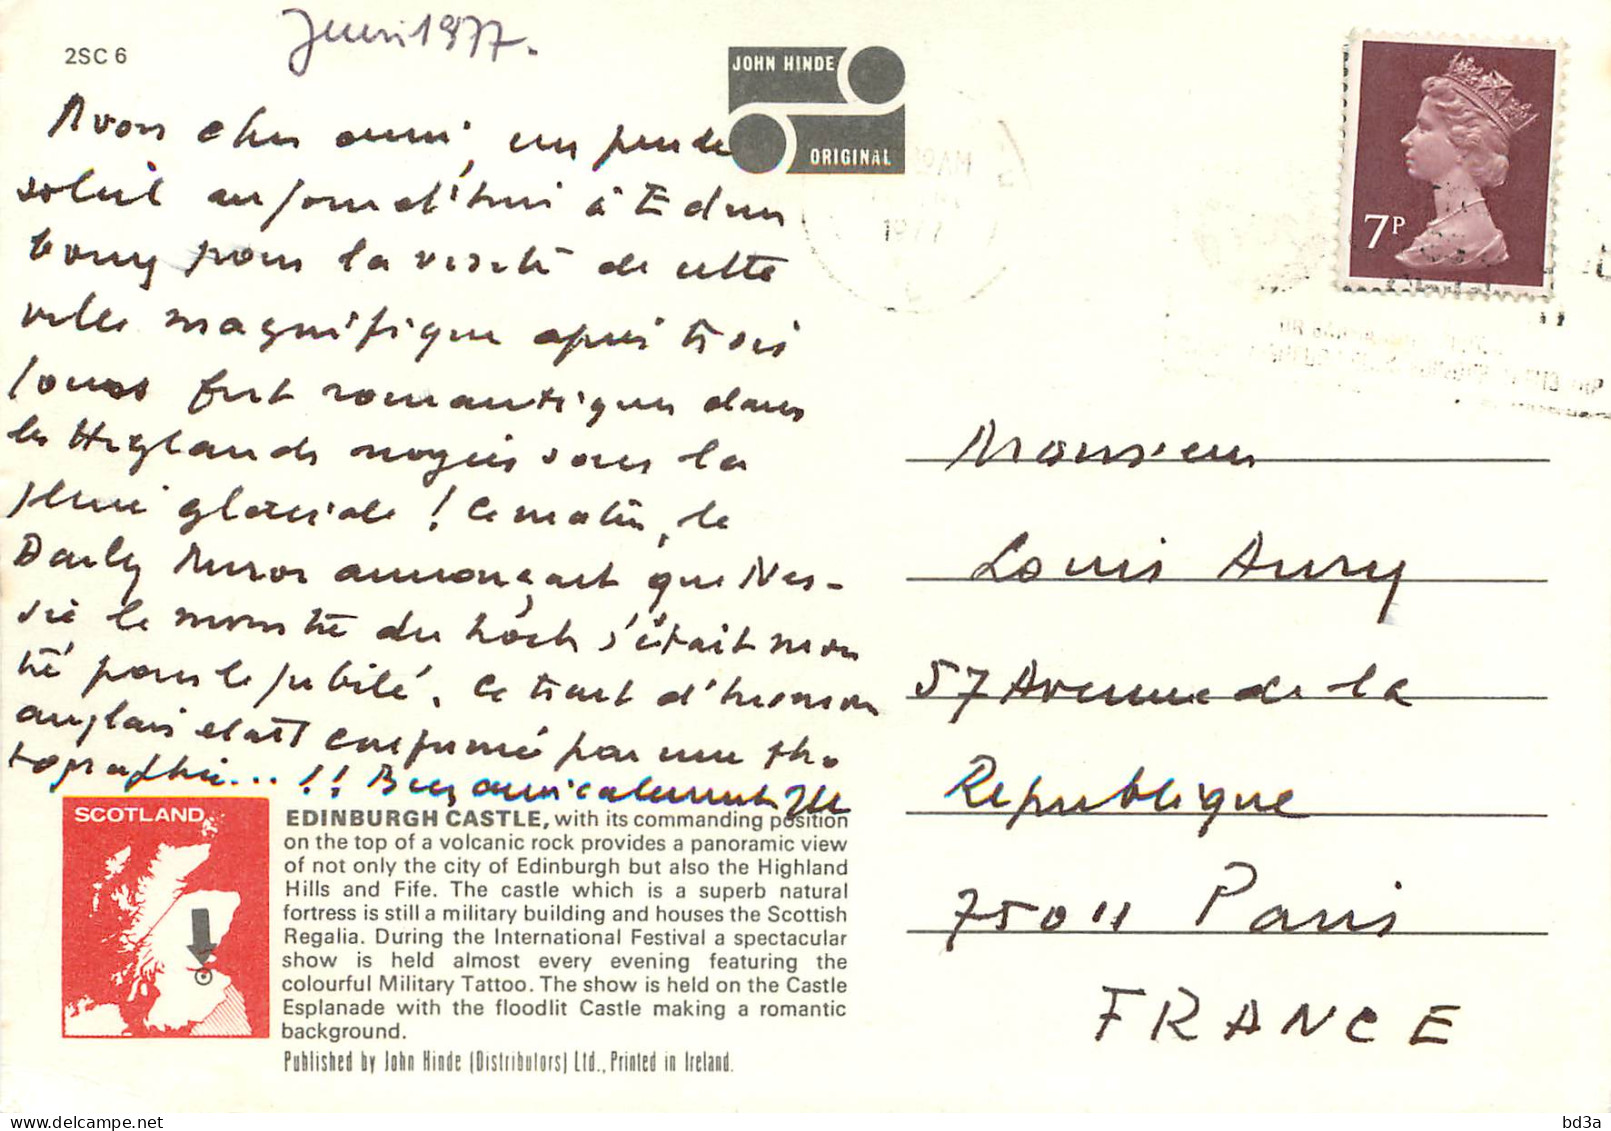 Juin 1977.
2SC 6
JOHN HINDE
ORIGINAL
7P
1977
Avons cher ami, un peu de
soleil aujourd'hui à Edin
bourg pour la visite de cette
ville magnifique après trois
jours fort romantiques dans
les Higlands noyés sous la
pluie glaciale ! Ce matin, le
Daily Miror annonçait que Nes-
sie le monstre du Loch s'était mon
tré pour le jubilé. Ce trait d'humour
anglais était confirmé par une pho
tographie...!! Bien amicalement
Monsieur
Louis Aury
57 Avenue de la
République
75011 Paris
FRANCE
SCOTLAND
EDINBURGH CASTLE, with its commanding position
on the top of a volcanic rock provides a panoramic view
of not only the city of Edinburgh but also the Highland
Hills and Fife. The castle which is a superb natural
fortress is still a military building and houses the Scottish
Regalia. During the International Festival a spectacular
show is held almost every evening featuring the
colourful Military Tattoo. The show is held on the Castle
Esplanade with the floodlit Castle making a romantic
background.
Published by John Hinde (Distributors) Ltd., Printed in Ireland.
bd3a